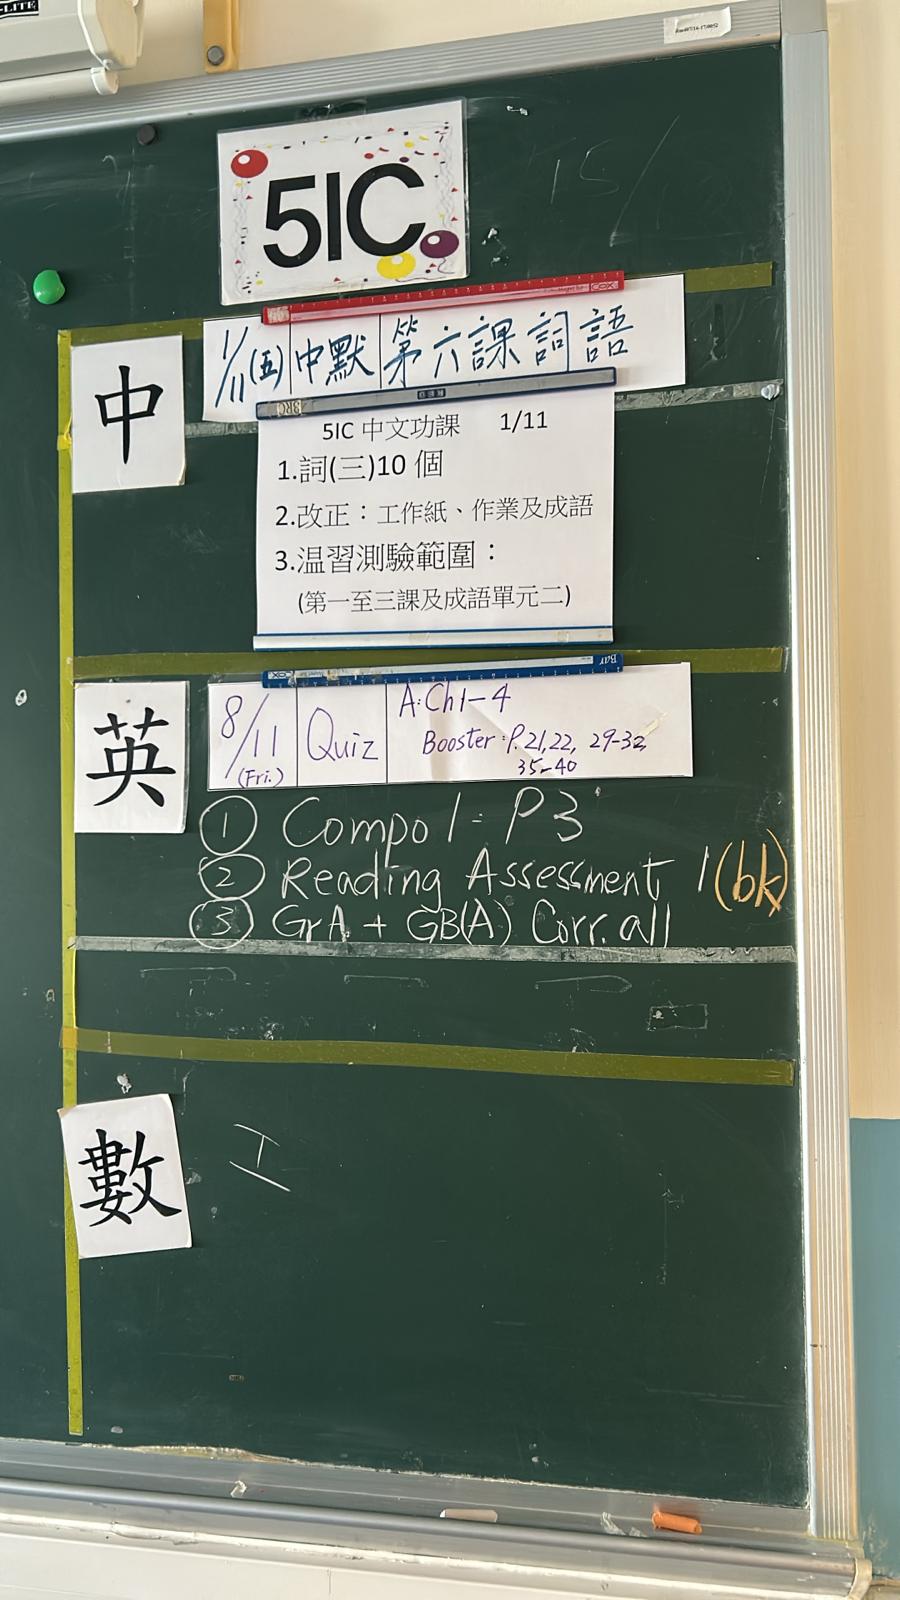 5IC
15/
中
1/11(五) 中默 第六課詞語
5IC 中文功課 1/11
1.詞(三)10 個
2.改正：工作紙、作業及成語
3.温習測驗範圍：
(第一至三課及成語單元二)
英
8/11 (Fri.) Quiz A: Ch1-4
Booster: P.21,22, 29-32,
35-40
① Compo 1: P3
② Reading Assessment 1 (bk)
③ GrA + GB(A) Corr. all
數